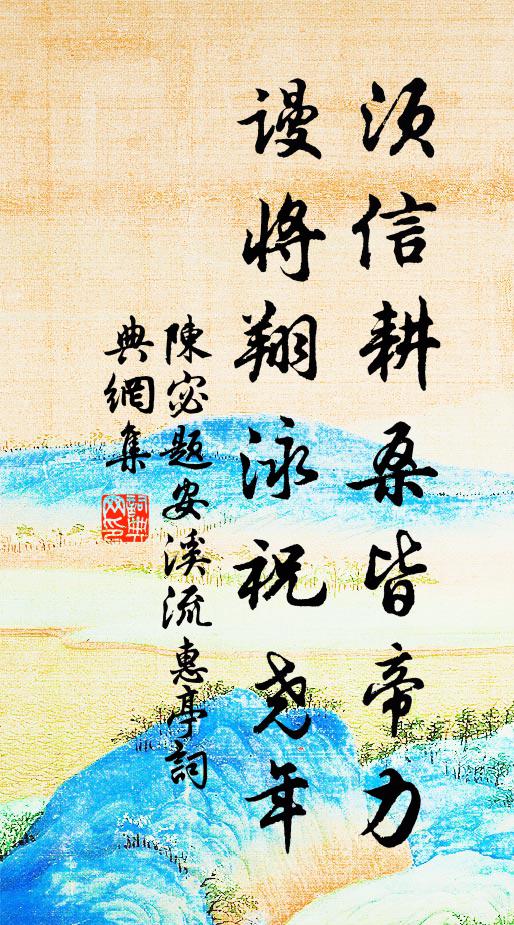 須信耕桑皆帝力
謾將翔泳祝尧年
陳宓題安溪流惠亭詞
典網集
詞典